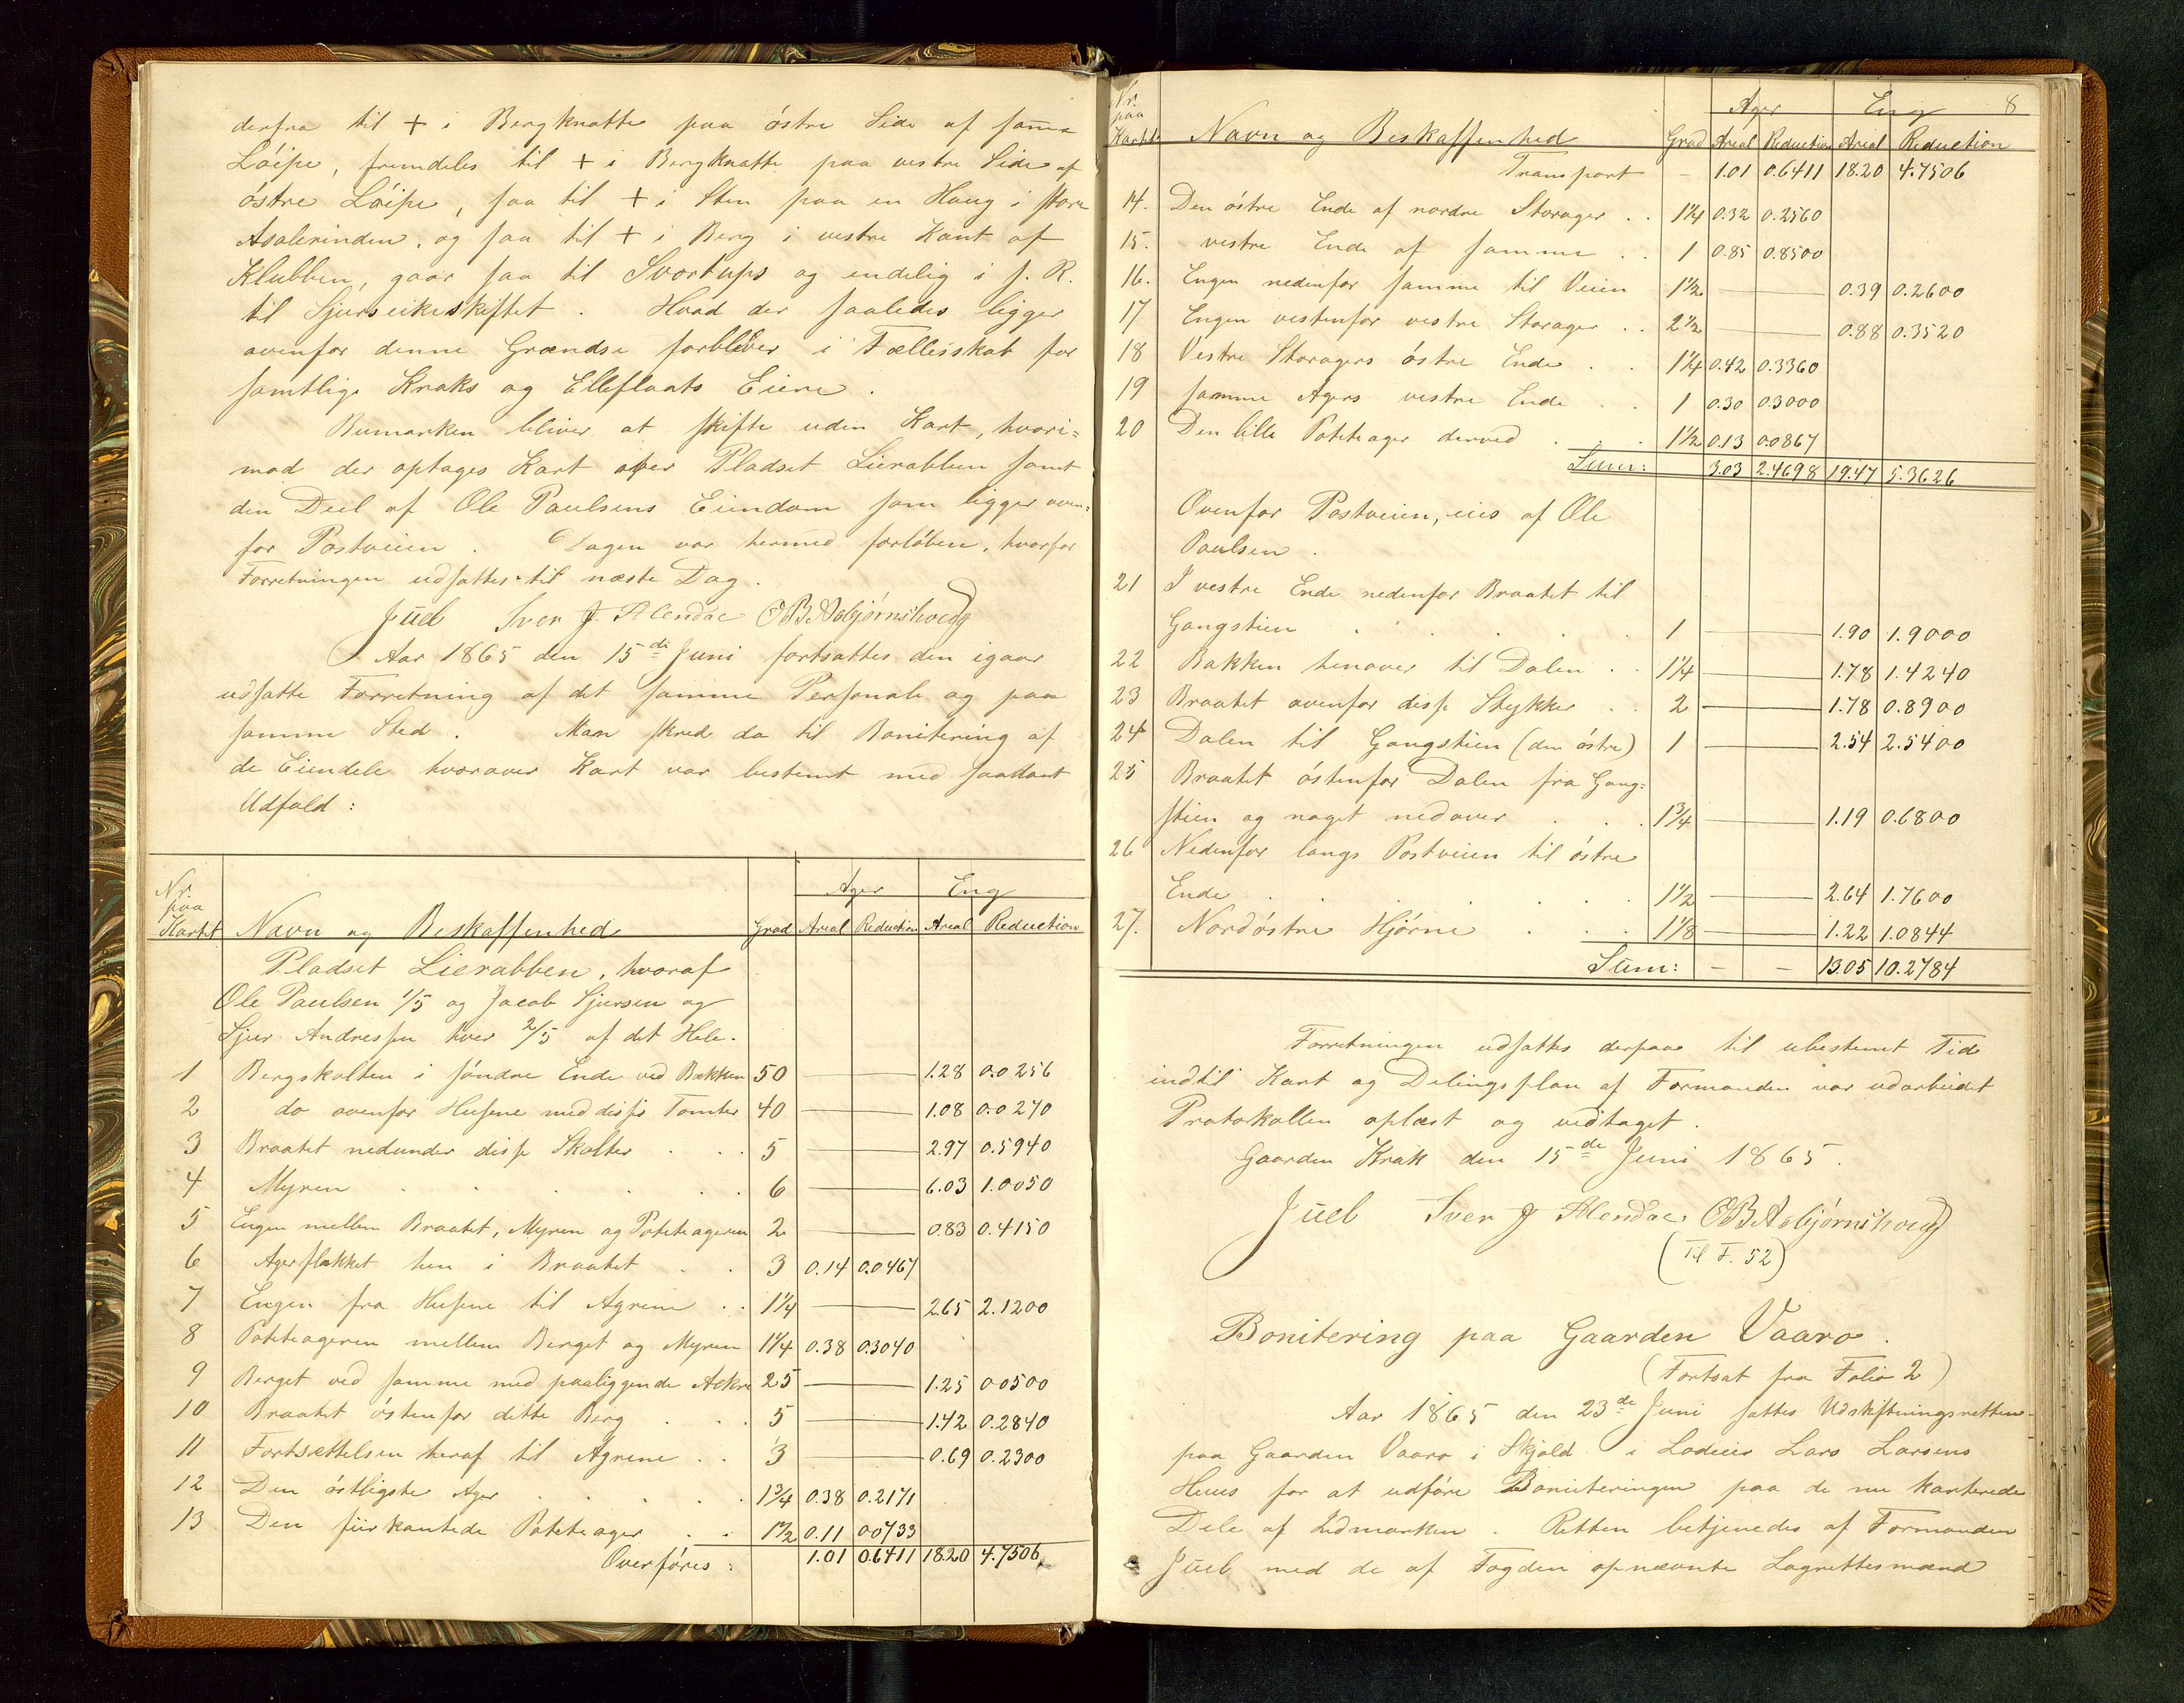 derfra til + i Bergknatte paa östre Side af samme
Löipe, fremdeles til + i Bergknatte paa vestre Side af
östre Löipe, saa til + i Sten paa en Haug i store
Asalerinden, og saa til + i Berg i vestre Kant af
Klubben, gaar saa til Svortups og endelig i s. R.
til Sjurseikeskiftet. Hvad der saaledes ligger
ovenfor denne Grændse forbliver i Fællesskab for
samtlige Kraks og Elleflaats Eiere.
Bumarken bliver at skifte uden Kart, hvori=
mod der optages Kart over Pladset Lierabben samt
den Deel af Ole Paulsens Eiendom som ligger oven=
for Postveien. Dagen var hermed forlöben, hvorfor
Forretningen udsattes til næste Dag.
Juel Sver J. Alendæ OBAsbjørnshveg
Aar 1865 den 15de Juni fortsattes den igaar
udsatte Forretning af det samme Personale og paa
samme Sted. Man skred da til Bonitering af
de Eiendele hvorover Kart var bestemt med saadant
Udfald:
Nr. paa Kartet Navn og Beskaffenhed Grad Ager Areal Reduction Eng Areal Reduction
Pladset Lierabben, hvoraf
Ole Paulsen 1/5 og Jacob Sjursen og
Sjur Andressen hver 2/5 af det Hele.
1 Bergskolten i söndre Ende ved Bækken 50 1.28 0.0256
2 do ovenfor Husene med disses Tomter 40 1.08 0.0270
3 Braatet nedunder disse Skolter 5 2.97 0.5940
4 Myren 6 6.03 1.0050
5 Engen mellem Braatet, Myren og Poteteageren 2 0.83 0.4150
6 Agerflækket hen i Braatet 3 0.14 0.0467
7 Engen fra Husene til Agrene 1 1/4 2.65 2.1200
8 Poteteageren mellem Berget og Myren 1 1/4 0.38 0.3040
9 Berget ved samme med paaliggende 25 1.25 0.0500
10 Braatet östenfor dette Berg 5 1.42 0.2840
11 Fortsættelsen heraf til Agrene 3 0.69 0.2300
12 Den östligste Ager 1 3/4 0.38 0.2171
13 Den fiirkantede Poteteager 1 1/2 0.11 0.0733
Overføres: 1.01 0.6411 18.20 4.7506
8
Nr. paa Kartet Navn og Beskaffenhed Grad Ager Areal Reduction Eng Areal Reduction
Transport - 1.01 0.6411 18.20 4.7506
14. Den östre Ende af nordre Storager 1 1/4 0.32 0.2560
15. vestre Ende af samme 1 0.85 0.8500
16. Engen nedenfor samme til Veien 1 1/2 0.39 0.2600
17 Engen vestenfor vestre Storager 2 1/2 0.88 0.3520
18 Vestre Storagers östre Ende 1 1/4 0.42 0.3360
19 samme Agers vestre Ende 1 0.30 0.3000
20 Den lille Poteteager derved 1 1/2 0.13 0.0867
Sum: 3.03 2.4698 19.47 5.3626
Ovenfor Postveien, eies af Ole
Paulsen.
21 I vestre Ende nedenfor Braatet til
Gangstien 1 1.90 1.9000
22 Bakken henover til Dalen 1 1/4 1.78 1.4240
23 Braatet ovenfor disse Stykker 2 1.78 0.8900
24 Dalen til Gangstien (den östre) 1 2.54 2.5400
25 Braatet östenfor Dalen fra Gang=
stien og noget nedover 1 3/4 1.19 0.6800
26 Nedenfor langs Postveien til östre
Ende 1 1/2 2.64 1.7600
27. Nordöstre Hjörne 1 1/8 1.22 1.0844
Sum: - - 13.05 10.2784
Forretningen udsattes derpaa til ubestemt Tid
indtil Kart og Delingsplan af Formanden var udarbeidet
Protokollen oplæst og vedtaget.
Gaarden Krak den 15de Juni 1865.
Juel Sver J Alendæ OBAsbjørnshveg
(Til F. 52)
Bonitering paa Gaarden Vaaro.
(Fortsat fra Folio 2)
Aar 1865 den 23de Juni sattes Udskiftningsretten
paa Gaarden Vaaro i Skjold i Lodeier Lars Larsens
Huus for at udföre Boniteringen paa de nu karterede
Dele af Udmarken. Retten betjenedes af Formanden
Juel med de af Fogden opnævnte Lagrettesmænd